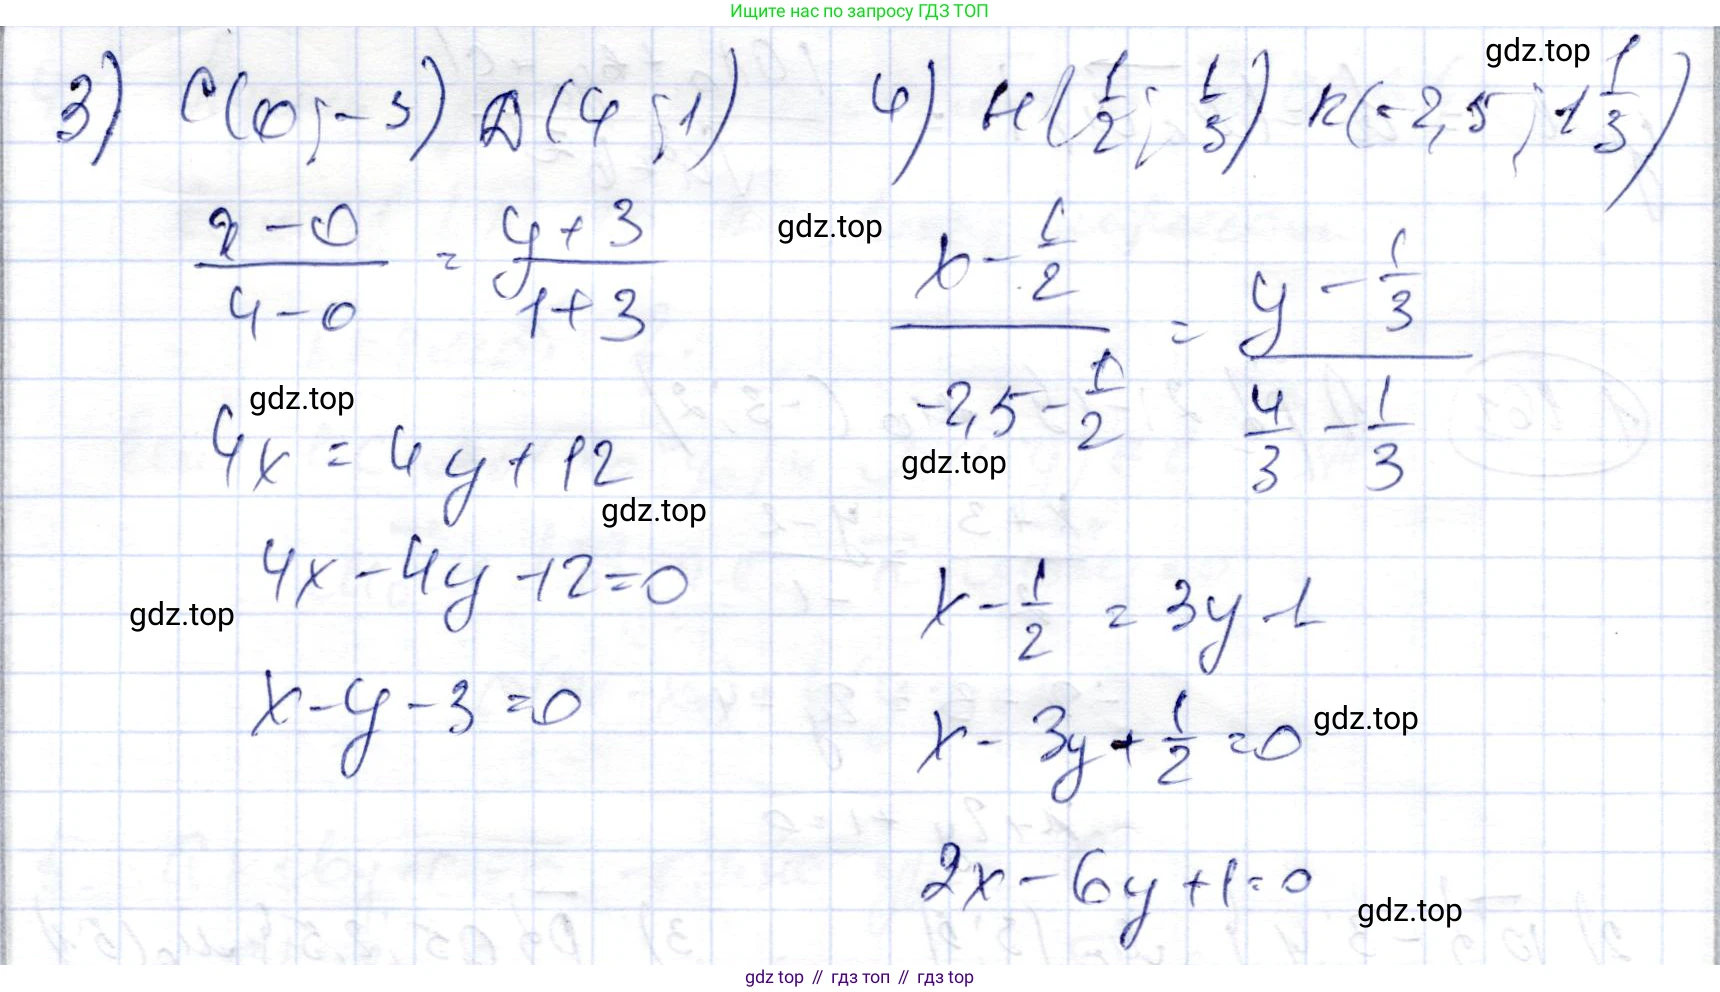 Ищите нас по запросу ГДЗ ТОП
3) C(0; -3) D(4; 1)
(x - 0)/(4 - 0) = (y + 3)/(1 + 3)
4x = 4y + 12
4x - 4y - 12 = 0
x - y - 3 = 0
4) H(1/2; 1/3) K(-2,5; 1 1/3)
(x - 1/2)/(-2,5 - 1/2) = (y - 1/3)/(4/3 - 1/3)
x - 1/2 = 3y - 1
x - 3y + 1/2 = 0
2x - 6y + 1 = 0
gdz.top
gdz.top
gdz.top
gdz.top
gdz.top
gdz.top
gdz.top
gdz.top
gdz top // гдз топ // гдз top